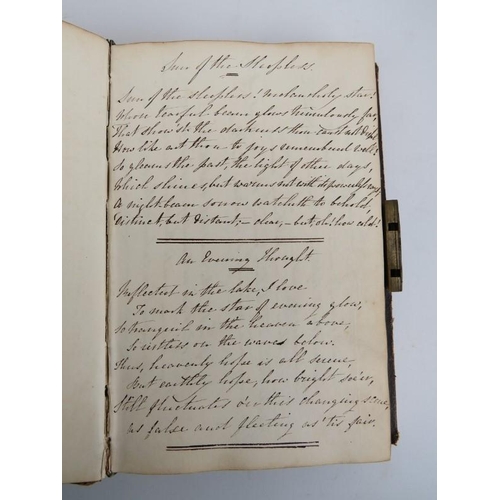 Sun of the Sleepless.
Sun of the sleepless! Melancholy star!
Whose tearful beam glows tremulously far,
That show'st the darkness thou canst not dispel
How like art thou to joys remembered well!
So gleams the past, the light of other days,
Which shines, but warms not with its powerless rays
A night-beam sorrow watcheth to behold
Distinct, but distant; - clear, - but, oh! how cold!
An Evening Thought.
Reflected in the lake, I love
To mark the star of evening glow,
So tranquil in the heaven above,
So restless on the waves below.
Thus, heavenly hope is all serene
But earthly hope, how bright soe'er,
Still fluctuates o'er this changing scene,
As false and fleeting as 'tis fair.